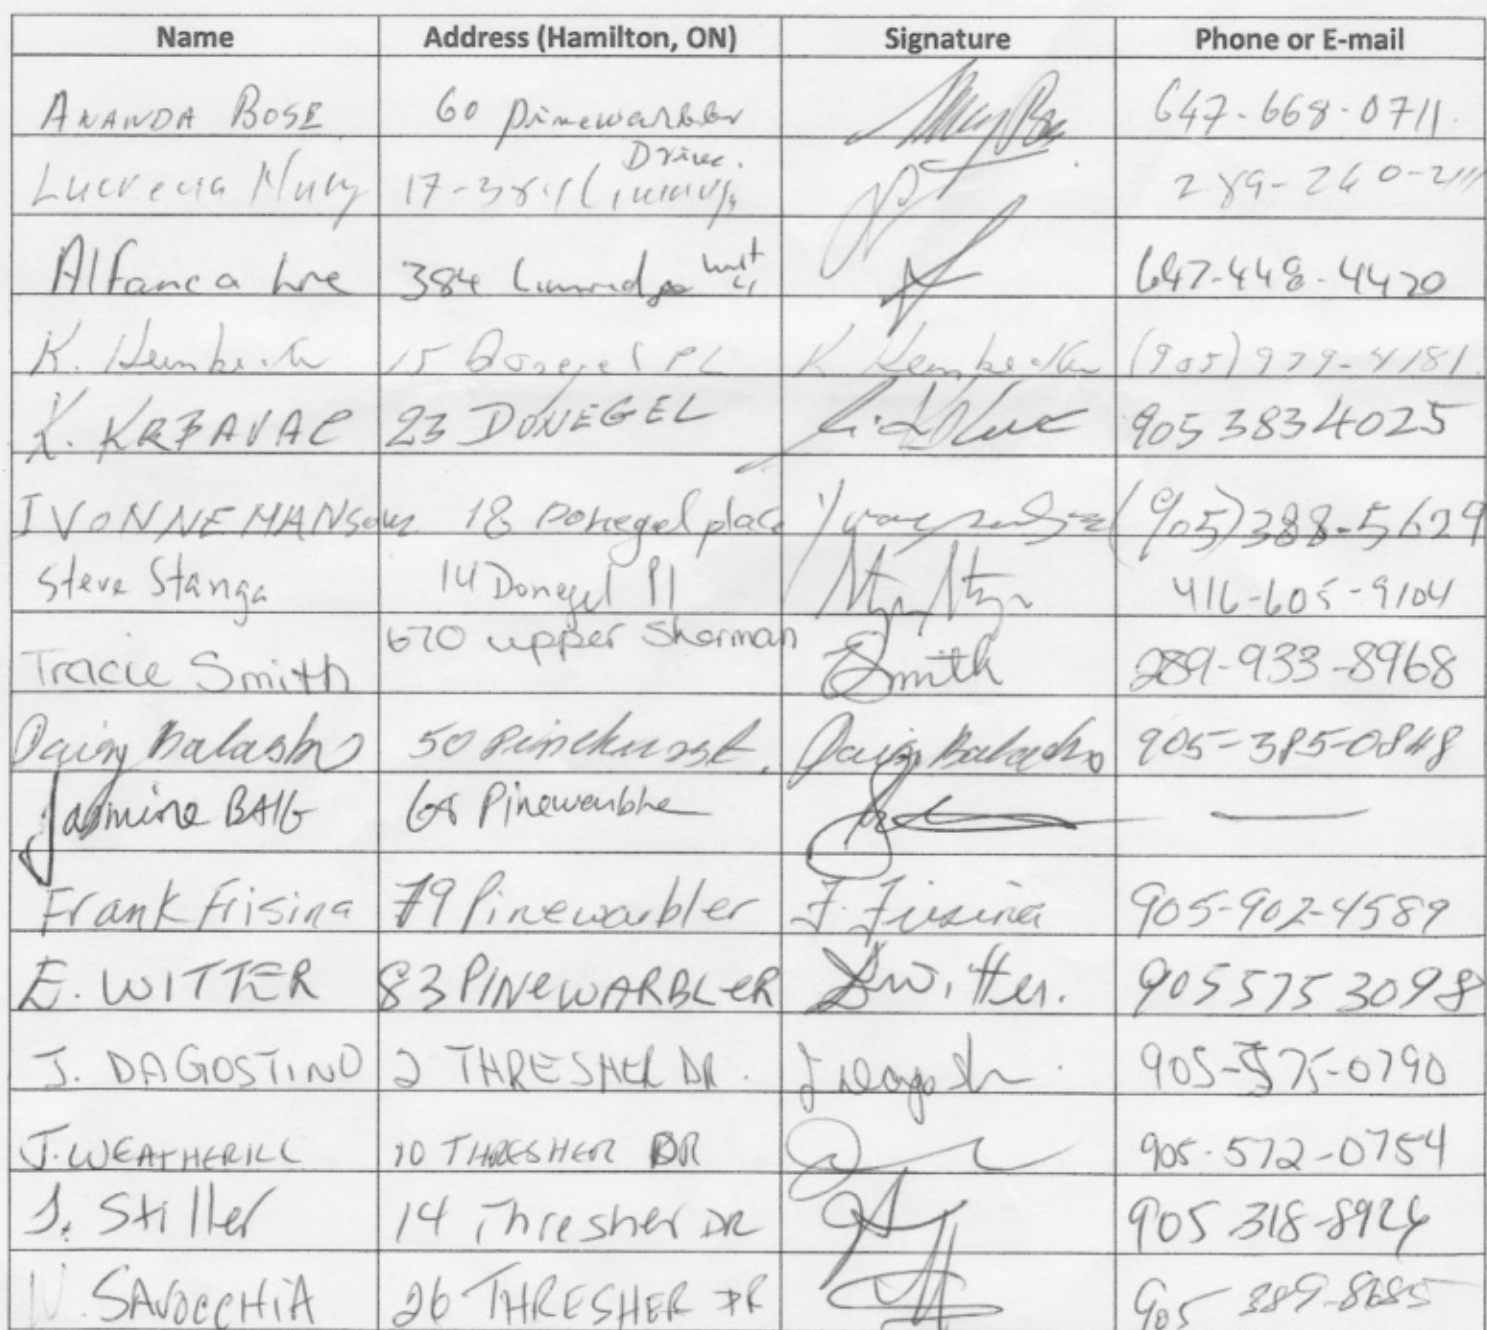 Name Address (Hamilton, ON) Signature Phone or E-mail
ANANDA BOSE 60 Pinewarbler Drive. 647-668-0711
Lucrecia 17-384 289-260-2111
384 Limeridge unit 647-448-4420
K. 15 Donegel PL K (905) 979-4181
K. KRZAVAC 23 DONEGEL 905 383 4025
IVONNE MANSOUR 18 Donegel place (905) 388-5629
Steve Stanga 14 Donegel Pl 416-605-9104
Tracie Smith 670 upper Sherman Smith 289-933-8968
Daisy Balasho 50 Pinehurst. Daisy Balasho 905-385-0848
Jasmine BAIG 68 Pinewarbler —
Frank Frisina 79 Pinewarbler F. Frisina 905-902-4589
E. WITTER 83 PINEWARBLER E Witter. 905 575 3098
J. DAGOSTINO 2 THRESHER DR. 905-575-0790
J. WEATHERILL 10 THRESHER DR 905-572-0754
J. Stiller 14 Thresher DR 905 318-8926
N. SAVOCCHIA 26 THRESHER DR 905 389-8685